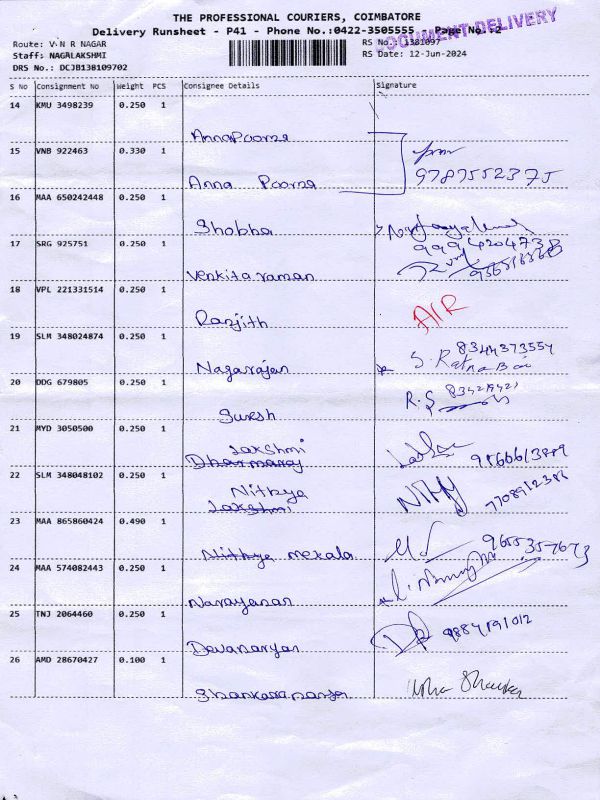 THE PROFESSIONAL COURIERS, COIMBATORE
Delivery Runsheet - P41 - Phone No.:0422-3505555 Page No.:2
DOCUMENT DELIVERY
Route: V N R NAGAR
RS No : 1381097
Staff: NAGALAKSHMI
RS Date: 12-Jun-2024
DRS No.: DCJB138109702
S No Consignment No Weight PCS Consignee Details Signature
14 KMU 3498239 0.250 1
AnnaPoorna
15 VNB 922463 0.330 1
9787552375
Anna Poorna
16 MAA 650242448 0.250 1
Shobha
17 SRG 925751 0.250 1
9994204738
Venkitaraman
18 VPL 221331514 0.250 1
Ranjith AIR
19 SLM 348024874 0.250 1
8344373554
Nagarajan S. Ratna Bai
20 DDG 679805 0.250 1
R.S
Suresh
21 MYD 3050500 0.250 1
Lakshmi
Dharmaraj
22 SLM 348048102 0.250 1
Nithya
Lakshmi
7708912386
23 MAA 865860424 0.490 1
Nithya mekala 9655357673
24 MAA 574082443 0.250 1
Narayanan
25 TNJ 2064460 0.250 1
9884191012
Devanaryan
26 AMD 28670427 0.100 1
Shankaranarayanan